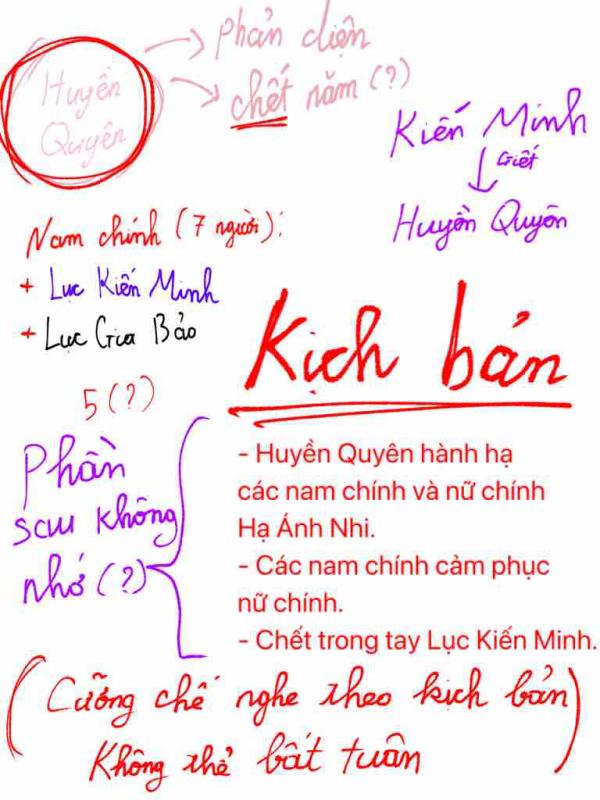 Huyền
Quyên
phản diện
chết năm (?)
Kiến Minh
Giết
Huyền Quyên
Nam chính (7 người):
+ Lục Kiến Minh
+ Lục Gia Bảo
5 (?)
Kịch bản
Phần
sau không
nhớ (?)
- Huyền Quyên hành hạ
các nam chính và nữ chính
Hạ Ánh Nhi.
- Các nam chính cảm phục
nữ chính.
- Chết trong tay Lục Kiến Minh.
(Cưỡng chế nghe theo kịch bản
Không thể bất tuân)